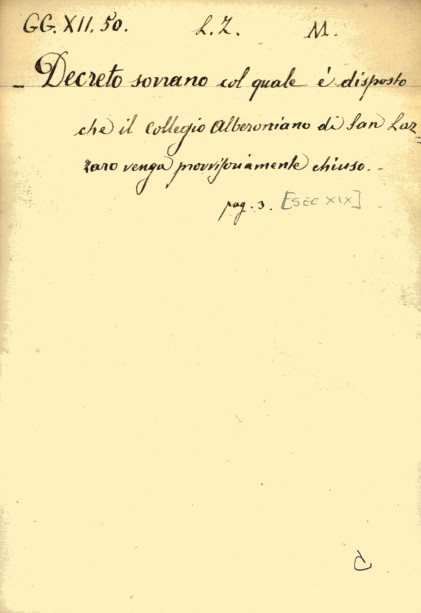 GG. XII. 50. L. Z. M.
– Decreto sovrano col quale é disposto
che il Collegio Alberoniano di San Laz=
zaro venga provvisoriamente chiuso. –
pag. 3. [SEC XIX]